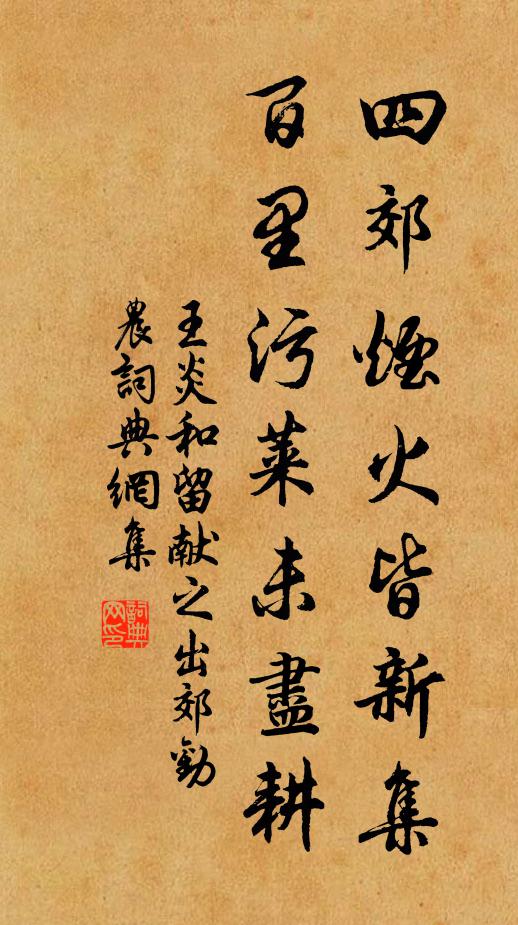 四郊煙火皆新集
百里污萊未盡耕
王炎和留献之出郊勸
農詞典網集
詞典网印